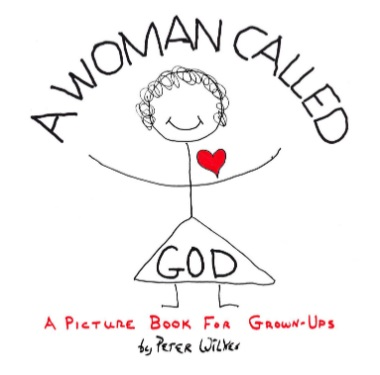 A WOMAN CALLED
GOD
A PICTURE BOOK FOR GROWN-UPS
by PETER WILKES